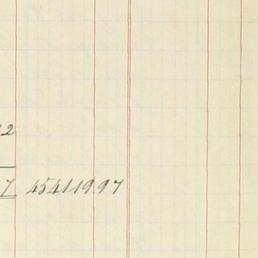 2
7 4541997